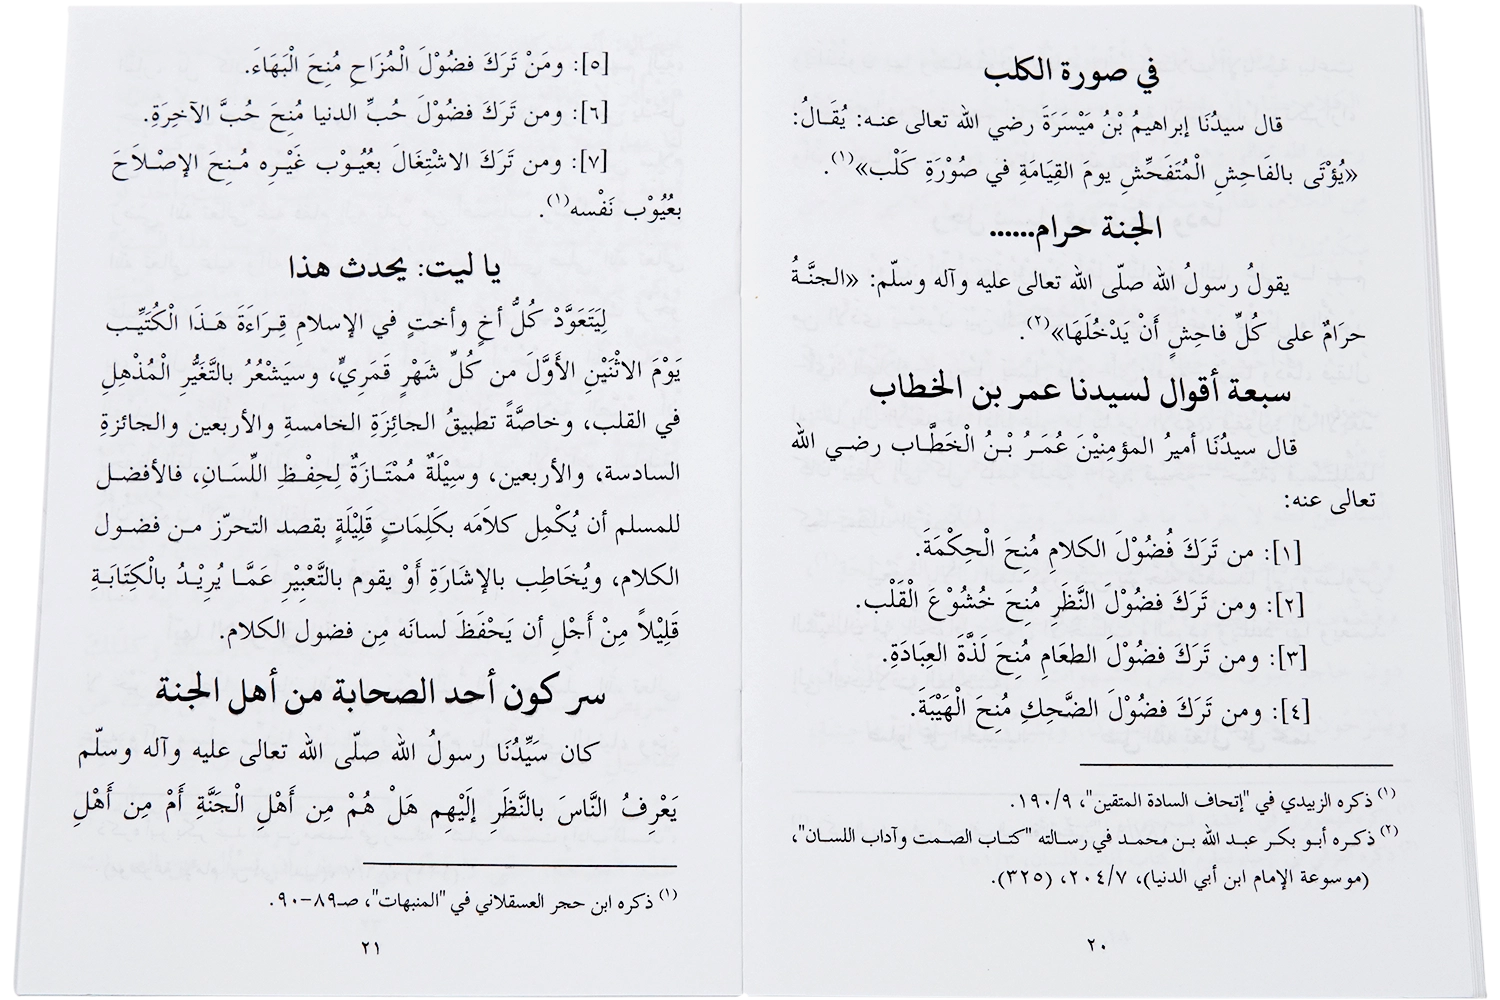 في صورة الكلب
قال سيدُنَا إبراهيمُ بْنُ مَيْسَرَةَ رضي الله تعالى عنه: يُقَالُ:
«يُؤْتَى بالفَاحِشِ الْمُتَفَحِّشِ يومَ القِيَامَةِ في صُوْرَةِ كَلْب»(١).
الجنة حرام......
يقولُ رسولُ الله صلّى الله تعالى عليه وآله وسلّم: «الجنَّةُ
حرَامٌ على كُلِّ فاحِشٍ أَنْ يَدْخُلَهَا»(٢).
سبعة أقوال لسيدنا عمر بن الخطاب
قال سيدُنَا أميرُ المؤمِنِيْنَ عُمَرُ بْنُ الْخَطَّاب رضي الله
تعالى عنه:
[١]: من تَرَكَ فُضُوْلَ الكلامِ مُنِحَ الْحِكْمَةَ.
[٢]: ومن تَرَكَ فضُوْلَ النَّظَرِ مُنِحَ خُشُوْعَ الْقَلْب.
[٣]: ومن تَرَكَ فضُوْلَ الطعَامِ مُنِحَ لَذَّةَ العِبَادَةِ.
[٤]: ومن تَرَكَ فضُوْلَ الضَّحِكِ مُنِحَ الْهَيْبَةَ.
(١) ذكره الزبيدي في "إتحاف السادة المتقين"، ١٩٠/٩.
(٢) ذكره أبو بكر عبد الله بن محمد في رسالته "كتاب الصمت وآداب اللسان"،
(موسوعة الإمام ابن أبي الدنيا)، ٢٠٤/٧، (٣٢٥).
٢٠
[٥]: ومَنْ تَرَكَ فضُوْلَ الْمُزَاحِ مُنِحَ الْبَهَاءَ.
[٦]: ومن تَرَكَ فضُوْلَ حُبِّ الدنيا مُنِحَ حُبَّ الآخِرَةِ.
[٧]: ومن تَرَكَ الاشْتِغَالَ بعُيُوْب غَيْرِه مُنِحَ الإصْلَاحَ
بعُيُوْب نَفْسه(١).
يا ليت: يحدث هذا
لِيَتَعَوَّدْ كُلُّ أخٍ وأختٍ في الإسلامِ قِرَاءَةَ هَذَا الْكُتَيِّب
يَوْمَ الاثْنَيْنِ الأَوَّلَ من كُلِّ شَهْرٍ قَمَرِيٍّ، وسيَشْعُرُ بالتَّغَيُّرِ الْمُذْهِلِ
في القلب، وخاصَّةً تطبيقُ الجائِزَةِ الخامسةِ والأربعين والجائزةِ
السادسة، والأربعين، وسِيْلَةٌ مُمْتَازَةٌ لِحِفْظِ اللِّسَانِ، فالأفضل
للمسلم أن يُكْمِل كلاَمَه بكَلِمَاتٍ قَلِيْلَةٍ بقصد التحرّز من فضول
الكلام، ويُخَاطِب بالإشَارَةِ أَوْ يقوم بالتَّعْبِيْرِ عَمَّا يُرِيْدُ بالْكِتَابَةِ
قَلِيْلاً مِنْ أَجْلِ أن يَحْفَظَ لسانَه مِن فضول الكلام.
سر كون أحد الصحابة من أهل الجنة
كان سَيِّدُنَا رسولُ الله صلّى الله تعالى عليه وآله وسلّم
يَعْرِفُ النَّاسَ بالنَّظَرِ إلَيْهِم هَلْ هُمْ مِن أَهْلِ الْجَنَّةِ أَمْ مِن أَهْلِ
(١) ذكره ابن حجر العسقلاني في "المنبهات"، صـ٨٩-٩٠.
٢١